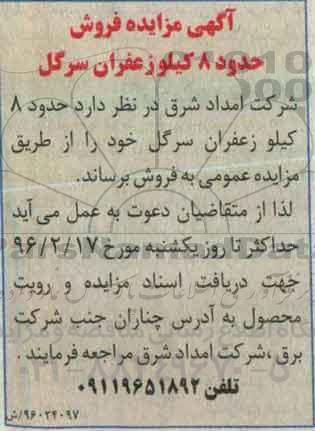 آگهی مزایده فروش
حدود ۸ کیلو زعفران سرگل
شرکت امداد شرق در نظر دارد حدود ۸
کیلو زعفران سرگل خود را از طریق
مزایده عمومی به فروش برساند.
لذا از متقاضیان دعوت به عمل می آید
حداکثر تا روز یکشنبه مورخ ۹۶/۲/۱۷
جهت دریافت اسناد مزایده و رویت
محصول به آدرس چناران جنب شرکت
برق ،شرکت امداد شرق مراجعه فرمایند .
تلفن ۰۹۱۱۹۶۵۱۸۹۲
۹۶۰۲۴۰۹۷/ش